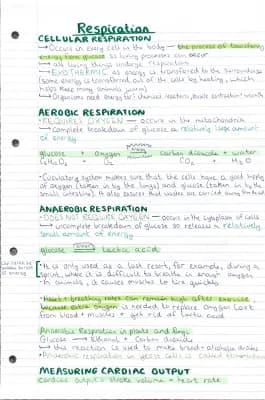 Respiration
CELLULAR RESPIRATION
→ Occurs in every cell in the body → the process of transferring
energy from glucose so living processes can occur
→ all living things undergo respiration
→ EXOTHERMIC as energy is transferred to the surroundings
(some energy is transferred out of the cells by heating, which
helps keep many animals warm)
→ Organisms need energy for: chemical reactions, muscle contraction + warmth
AEROBIC RESPIRATION
• REQUIRES OXYGEN → occurs in the mitochondria
→ complete breakdown of glucose so relatively large amount
of energy
glucose + oxygen → carbon dioxide + water
C6H12O6 O2 CO2 H2O
• Circulatory system makes sure that the cells have a good supply
of oxygen (taken in by the lungs) and glucose (taken in by the
small intestine). It also makes that wastes are carried away from
ANAEROBIC RESPIRATION
• DOES NOT REQUIRE OXYGEN → occurs in the cytoplasm of cells
→ incomplete breakdown of glucose so releases a relatively
small amount of energy
glucose → lactic acid
• It is only used as a last resort, for example, during a
sprint, when it is difficult to breathe in enough oxygen
• In animals, it causes muscles to tire quickly
• Heart + breathing rates can remain high after exercise
because extra oxygen is needed to replace oxygen lost
from blood + muscles + get rid of lactic acid
Anaerobic Respiration in plants and fungi
Glucose → Ethanol + Carbon dioxide
→ this reaction is used to make bread + alcoholic drinks
• Anaerobic respiration in yeast cells is called fermentation
MEASURING CARDIAC OUTPUT
cardiac output = stroke volume × heart rate